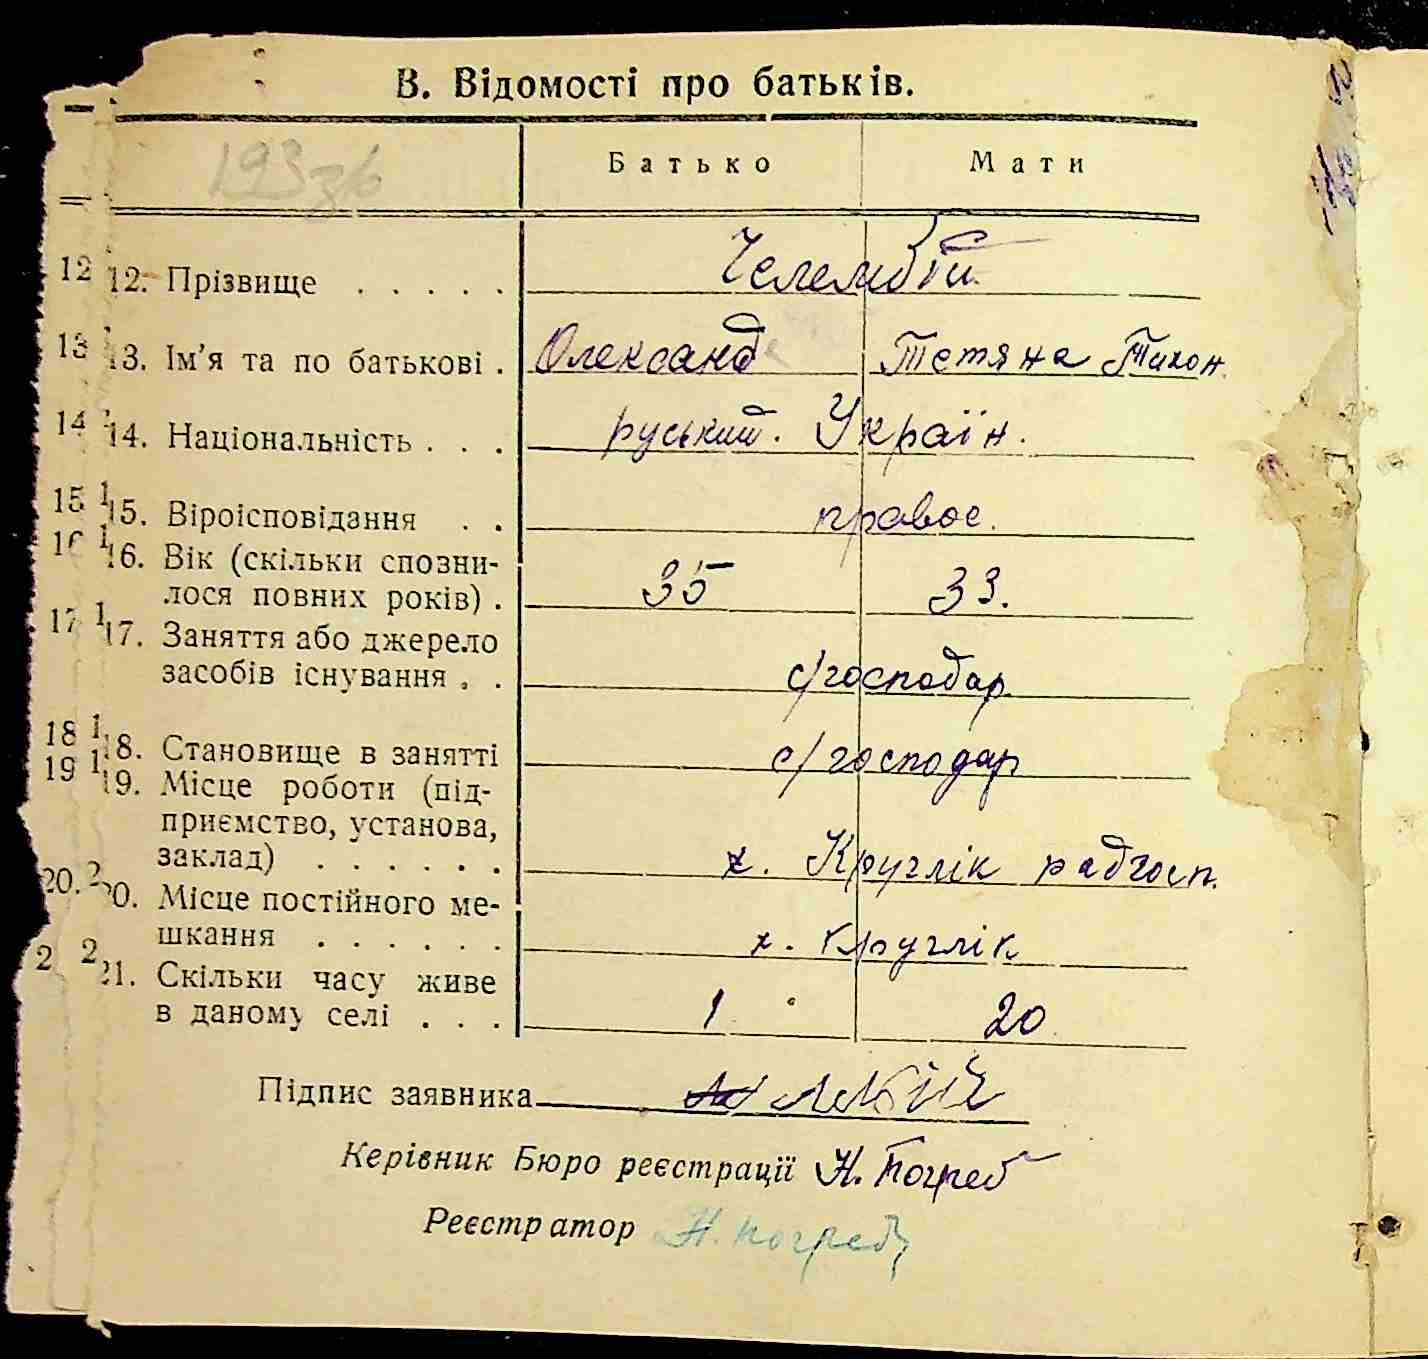 В. Відомості про батьків.
Батько Мати
12 12. Прізвище . . . . .
13 13. Ім’я та по батькові . Олександ Тетяна Тихон.
14 14. Національність . . . руський. Україн.
15 15. Віроісповідання . . правос.
16. Вік (скільки спозни-
лося повних років) . 35 33.
17 17. Заняття або джерело
засобів існування . . с/господар.
18 18. Становище в занятті с/господар
19 19. Місце роботи (під-
приємство, установа,
заклад) . . . . . . х. Круглік радгосп.
20. 20. Місце постійного ме-
шкання . . . . . . х. Круглік
2 21. Скільки часу живе
в даному селі . . . 1 20
Підпис заявника
Керівник Бюро реєстрації Н. Погреб
Реєстратор Н. Погреб